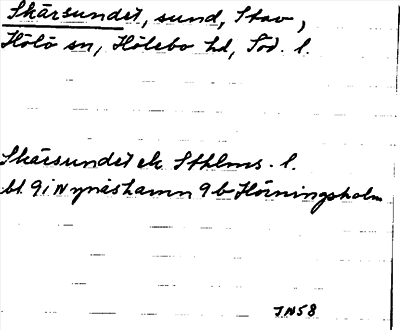 Skärsundet, sund, Stav,
Hölö sn, Hölebo hd, Söd. l.
Skärsundet ek Sthlms. l.
bl. 9i Nynäshamn 9b Hörningsholm
JN58